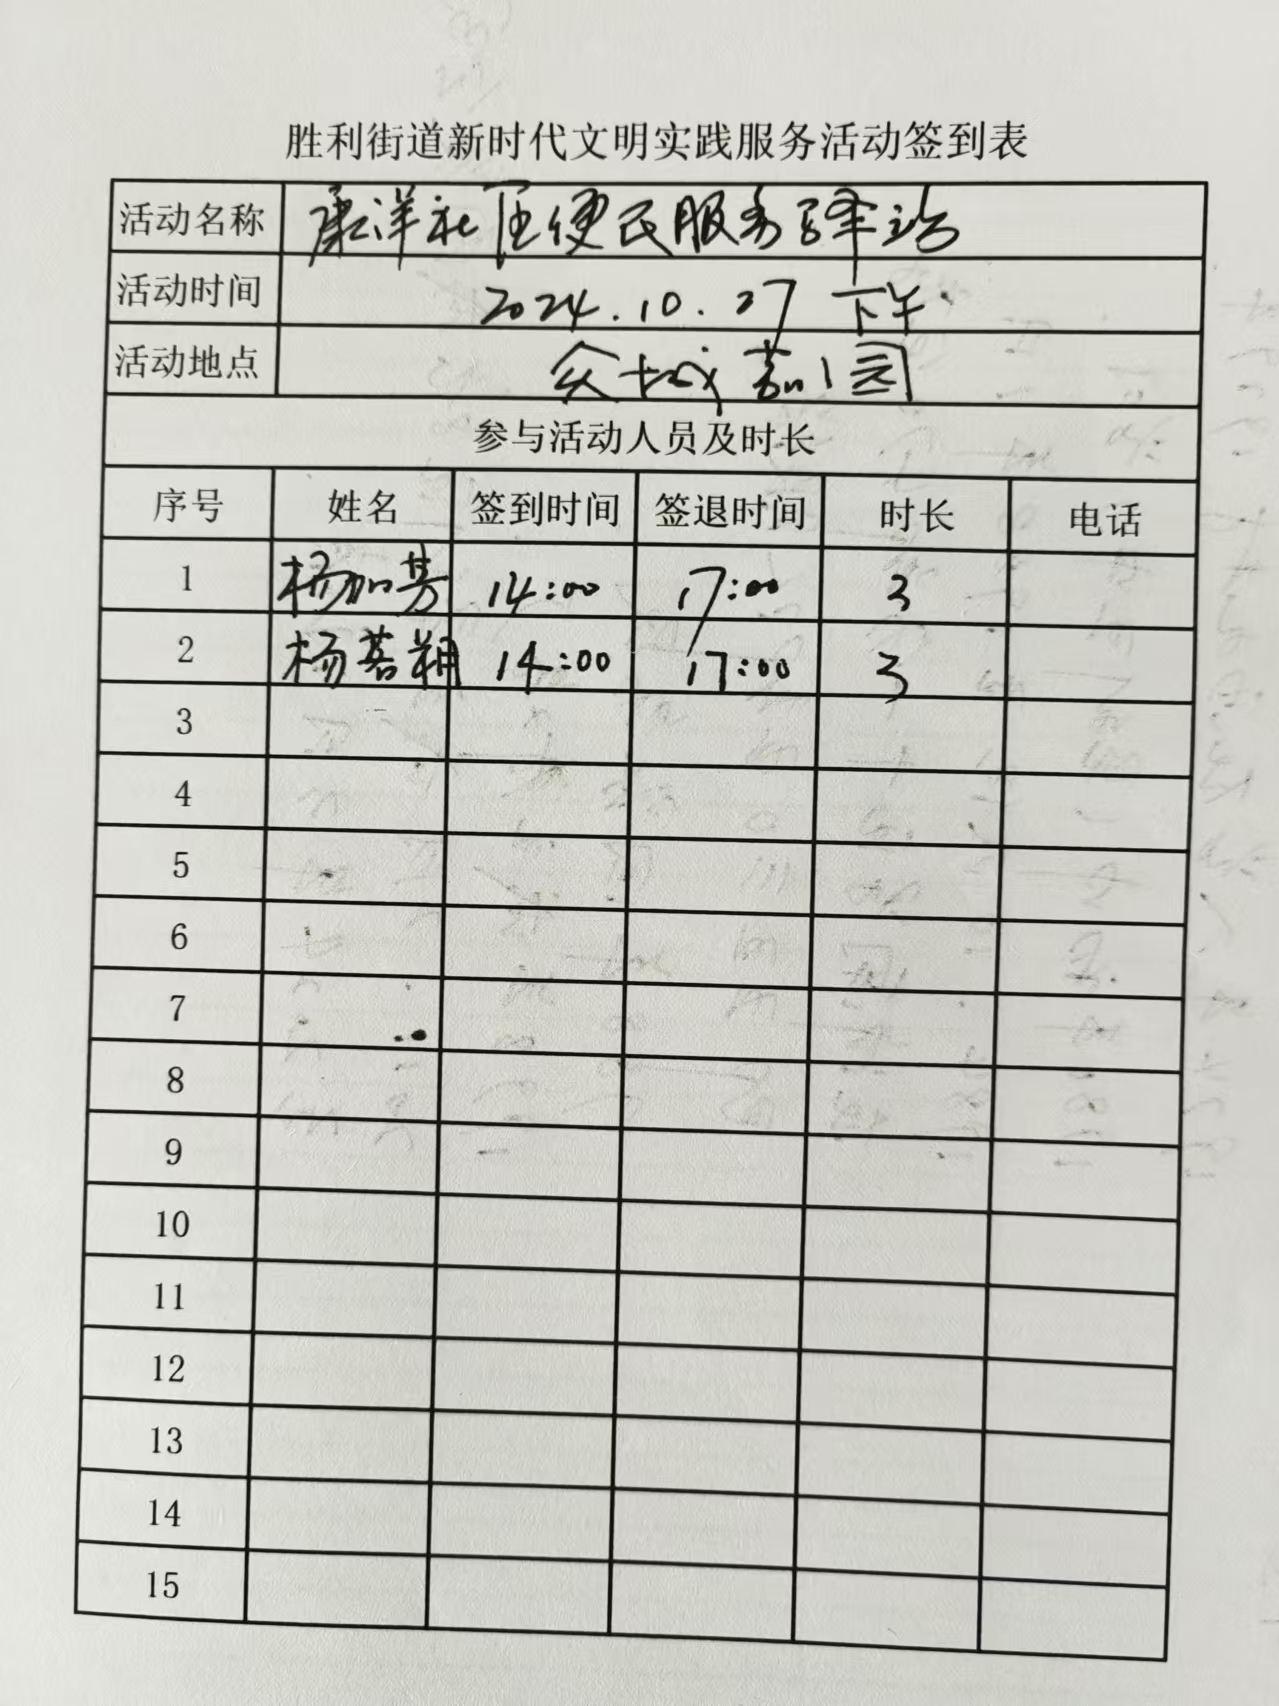 胜利街道新时代文明实践服务活动签到表
活动名称 康洋社区便民服务驿站
活动时间 2024.10.27 下午
活动地点 众城嘉园
参与活动人员及时长
序号 姓名 签到时间 签退时间 时长 电话
1 杨加芳 14:00 17:00 3
2 杨 14:00 17:00 3
3
4
5
6
7
8
9
10
11
12
13
14
15